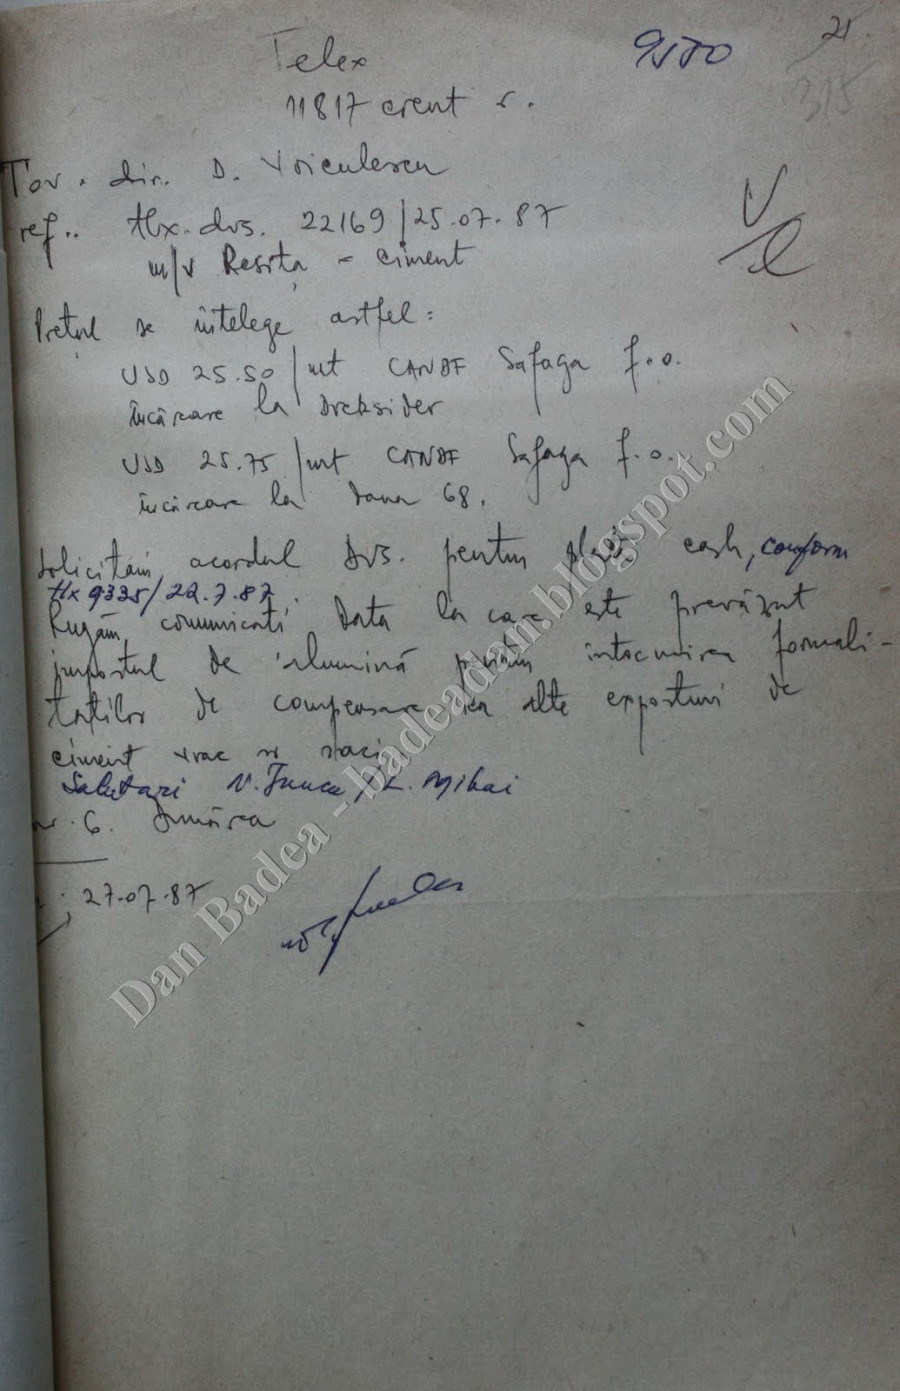 Telex
21.
315
11817 crent r.
Tov. dir. D. Voiculescu
ref.. tlx. dvs. 22169/25.07.87
m/v Resița - ciment
Prețul se întelege astfel:
USD 25.50/mt CANDF Safaga f.o.
încărcare la Dreksider
USD 25.75/mt CANDF Safaga f.o.
încărcare la Dana 68.
Solicităm acordul Dvs. pentru plată cash, conform
tlx 9335/22.7.87.
Rugăm, comunicati Data la care este prevăzut
importul de alumină pentru intocmirea formali-
taților de compensare alte exporturi de
ciment vrac si saci
Salutari N. Juncu / L. Mihai
6. Dunărea
27.07.87
Dan Badea - badeadan.blogspot.com